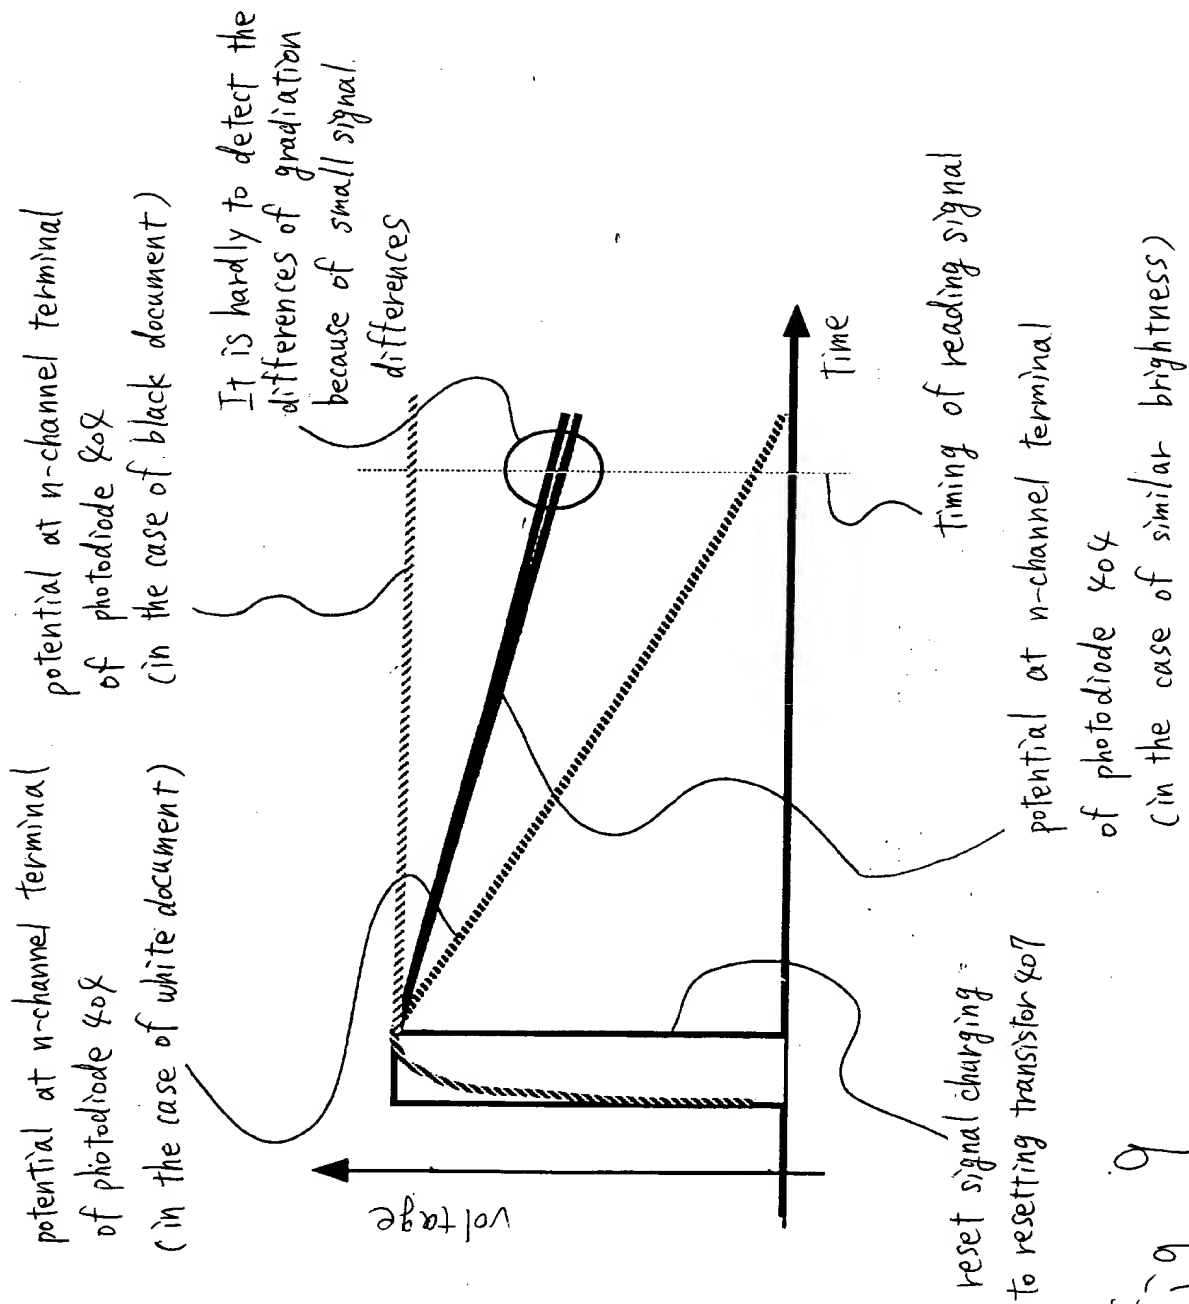 potential at n-channel terminal
of photodiode 404
(in the case of white document)
potential at n-channel terminal
of photodiode 404
(in the case of black document)
It is hardly to detect the
differences of gradiation
because of small signal
differences
voltage
Time
timing of reading signal
potential at n-channel terminal
of photodiode 404
(in the case of similar brightness)
reset signal charging
to resetting transistor 407
ig 9